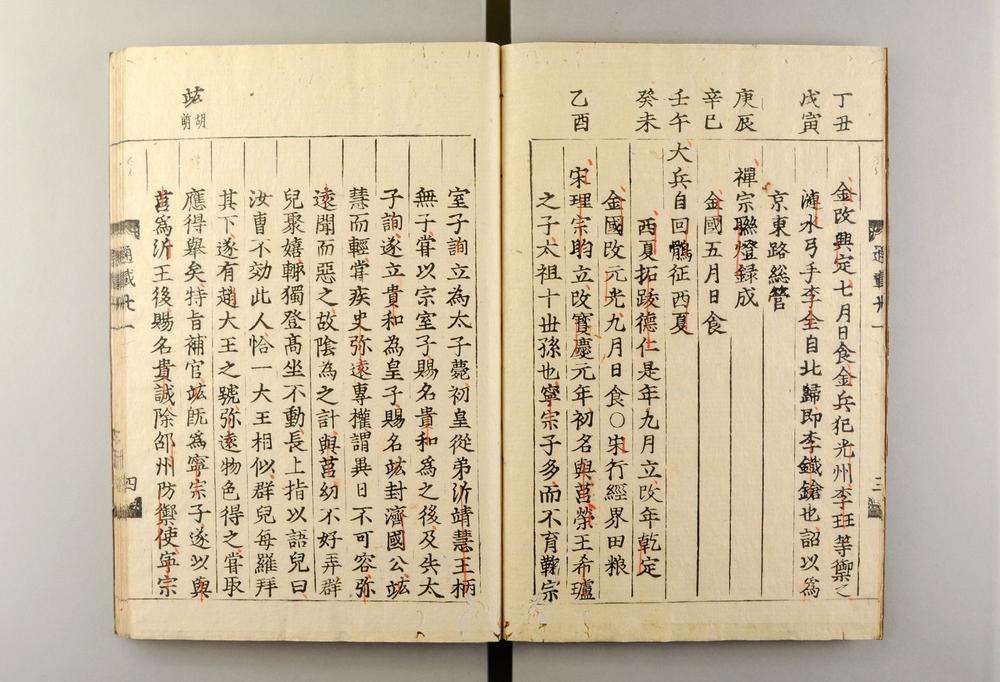 丁丑
金改興定七月日食金兵犯光州李珏等禦之
戊寅
漣水弓手李全自北歸即李鐵鎗也詔以爲
京東路総管
庚辰
禪宗聯燈録成
辛巳
金國五月日食
壬午
大兵自回鶻征西夏
癸未
西夏拓跋德仁是年九月立改年乾定
金國改元光九月日食○宋行經界田粮
乙酉
宋理宗昀立改寶慶元年初名與莒榮王希瓐
之子太祖十世孫也寧宗子多而不育鞠宗
通載廿一
三
室子詢立為太子薨初皇從弟沂靖惠王柄
無子甞以宗室子賜名貴和爲之後及失太
子詢遂立貴和為皇子賜名竑封濟國公竑
慧而輕甞疾史弥遠專權謂異日不可容弥
遠聞而惡之故陰為之計與莒幼不好弄群
兒聚嬉睇獨登髙坐不動長上指以語兒曰
汝曹不効此人恰一大王相似群兒每羅拜
其下遂有趙大王之號弥遠物色得之甞取
應得舉矣特旨補官竑旣爲寧宗子遂以與
莒爲沂王後賜名貴誠除邵州防禦使寧宗
竑
胡
萌
通載廿一
四